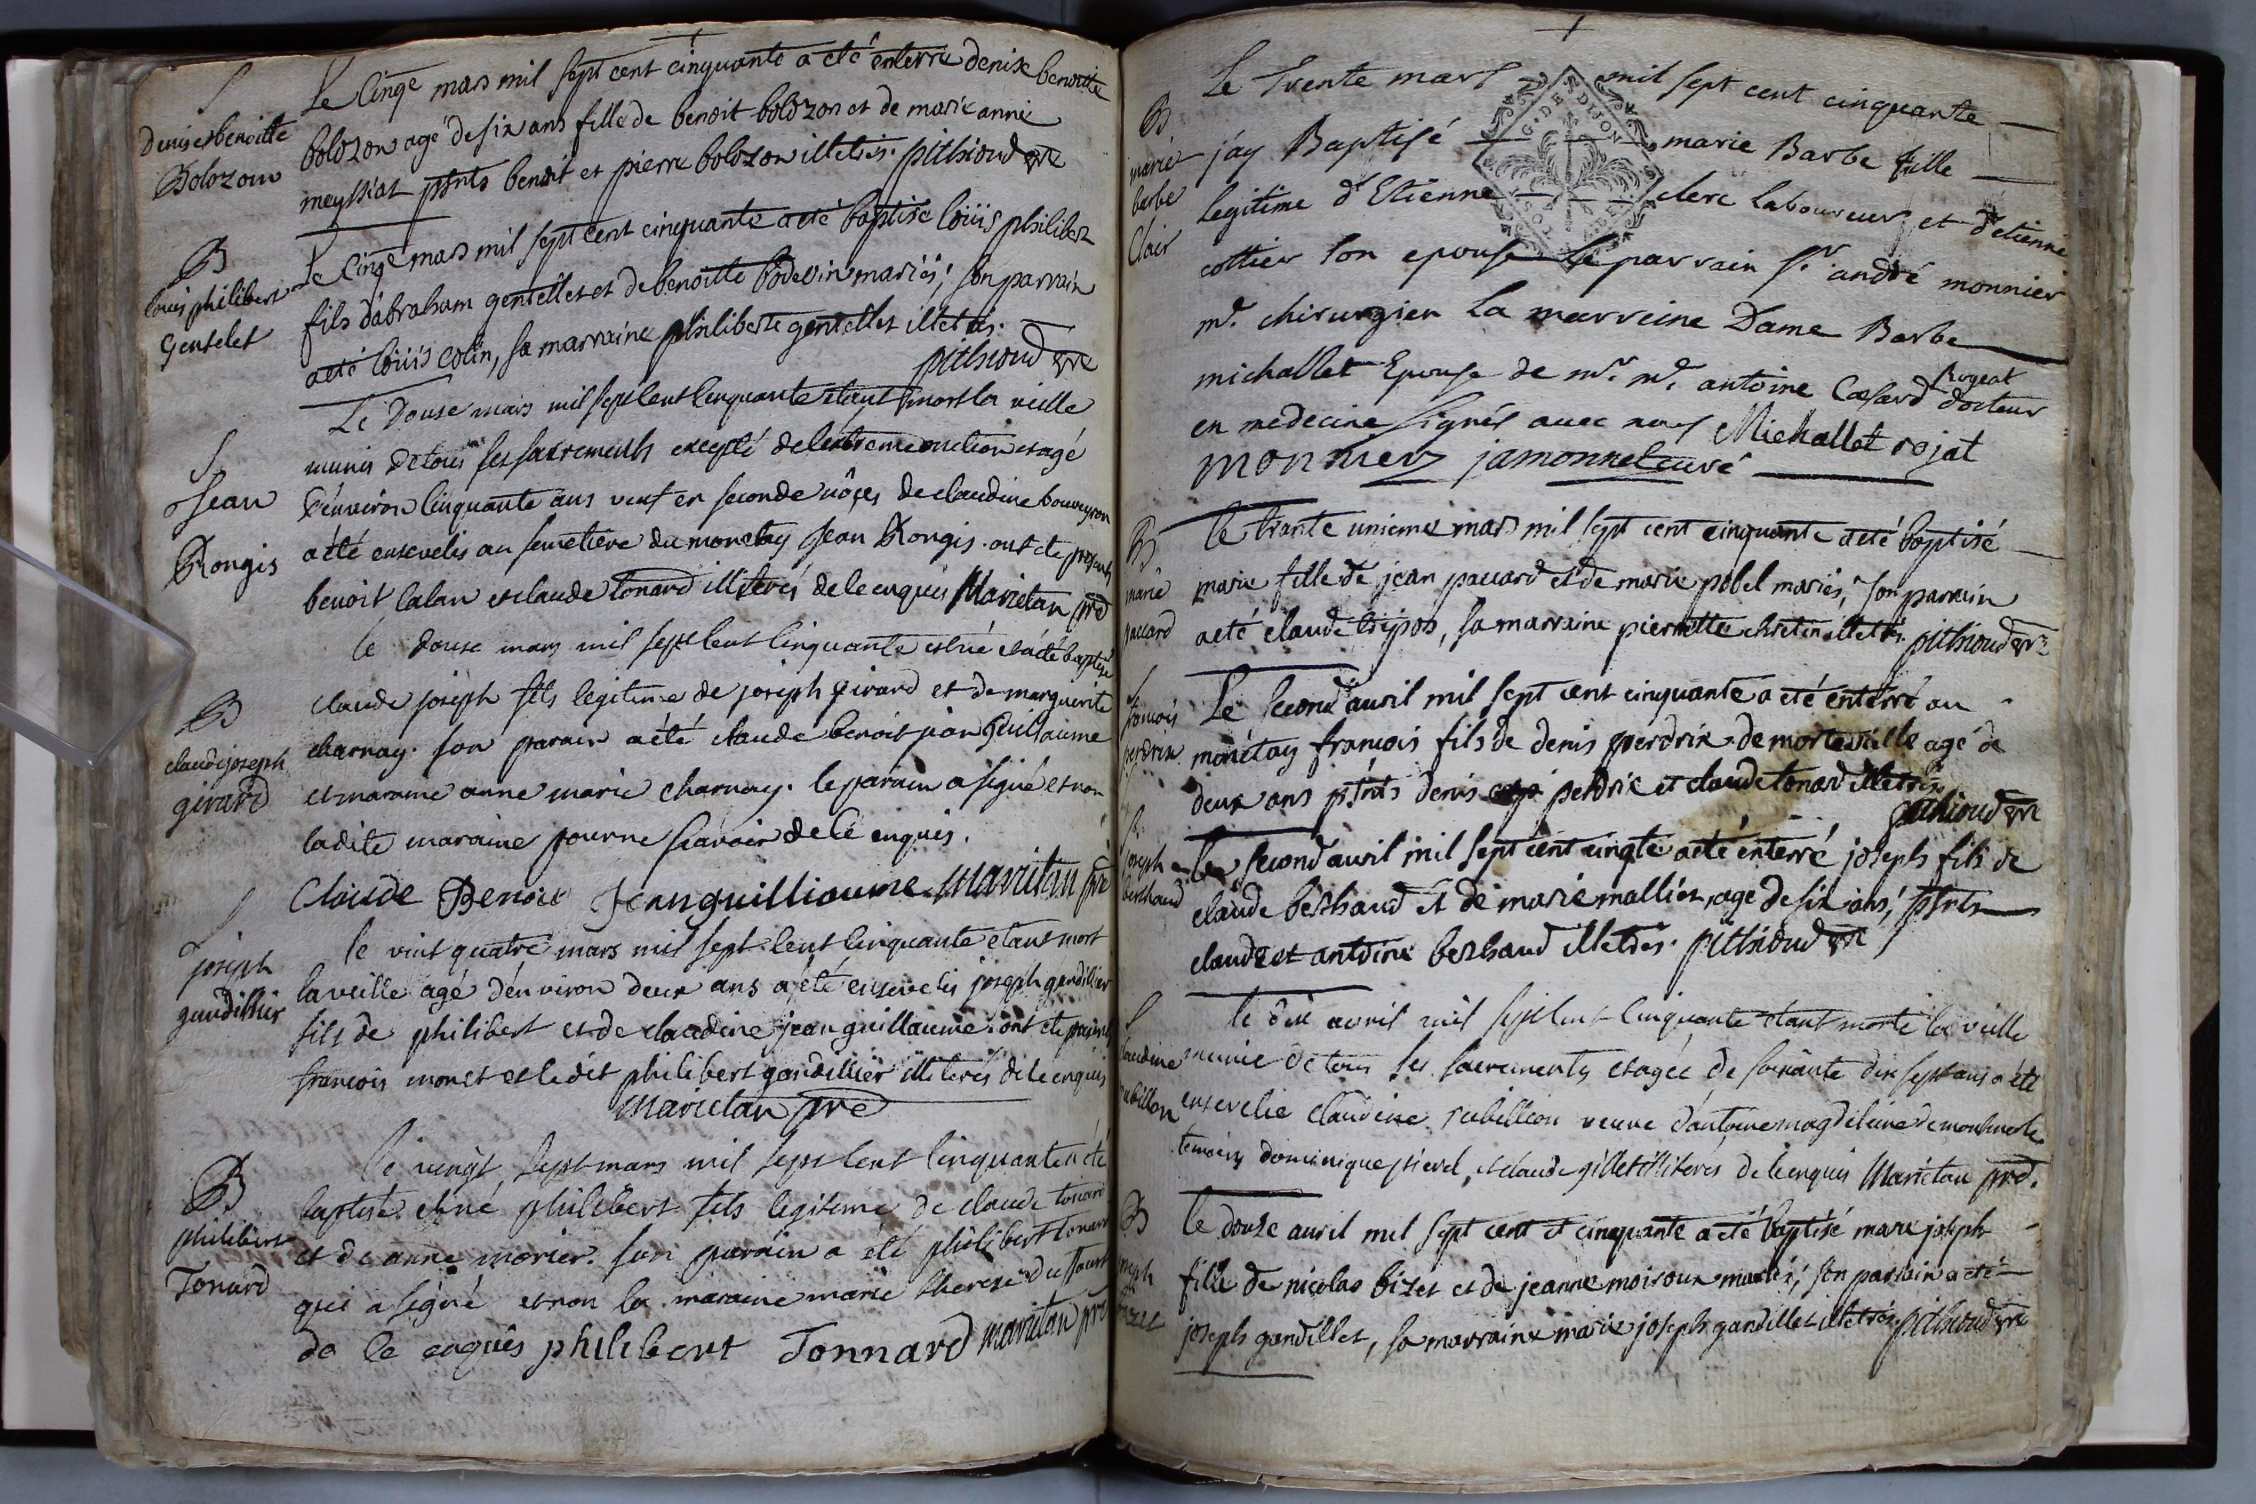 S
denise benoitte
Bolozon
Le cinqe mars mil sept cent cinquante a eté enterré denise benoitte
bolozon agé de six ans fille de benoit bolozon et de marie anne
meyssiat psnts benoit et pierre bolozon illetrés. pithioud ptre
B
louis philibert
Gentelet
Le cinqe mars mil sept cent cinquante a eté baptisé loüis philibert
fils d'abraham gentellet et de benoitte bodevin mariés; son parrain
a eté loüis colin, sa marraine philiberte gentellet illetrés.
pithioud ptre
S
Jean
Rongis
Le Douse mars mil sept cent cinquante etant mort la veille
munis de tous ses sacrements excepté de lextreme onction et agé
d'environ cinquante ans veuf en seconde nôçes de claudine bouveyron
a été ensevelis au semetiere du monetay Jean Rongis. ont ete presents
benoit Calan et claude tonard illiterés de le enquis Marietan pre
B
claude joseph
girard
le douse mars mil sept cent cinquante est né et a été baptisé
claude joseph fils legitime de joseph girard et de marguerite
charnay. son parain a été claude benoit jean Guillaume
et maraine anne marie charnay. le parain a signé et non
ladite maraine pour ne sçavoir de ce enquis.
Claude Benoit Jeanguilliaume Marietan pre
S
joseph
gandillier
le vint quatre mars mil sept cent cinquante etant mort
la veille agé d'environ deux ans a été ensevelis joseph gandilier
fils de philibert et de claudine jean guillaume. ont ete presents
françois monet et ledit philibert gandillier illiterés de le enquis
Marietan pre
B
philibert
Tonard
le vingt sept mars mil sept cent cinquante a été
baptisé et né philibert fils legitime de claude tonard
et de anne morier. son parain a été philibert tonard
qui a signé et non la maraine marie therese Dussourt
de le enquis philibert Tonnard Marietan pre
B
marie
barbe
Clair
Le Trente mars mil sept cent cinquante
G. DE DIJON
jay Baptisé marie Barbe fille
legitime d'Etienne clerc laboureur, et d'etienne
cottier son epouse le parrain sr andré monnier
me. chirurgien La marreine Dame Barbe
michallet Epouse de mr. me. antoine Cæsard Rogeat docteur
en medecine signés avec nous Michallet rojat
monnier jamonnet curé
B
marie
paccard
le trante unieme mars mil sept cent cinquante a eté baptisé
marie fille de jean paccard et de marie pobel mariés; son parrain
a eté claude crepos, sa marraine pierrette chretin illetrés. pithioud ptre
S
françois
perdrix
Le second avril mil sept cent cinquante a eté enterré au
monétay françois fils de denis perdrix de morteville agé de
deux ans psnts denis perdrix et claude tonard illetrés.
pithioud ptre
S
joseph
berthaud
le second avril mil sept cent cinqte a eté enterré joseph fils de
claude berthaud et de marie mallier, agé de six ans; psnts
claude et antoine berthaud illetrés. pithioud ptre
S
claudine
rubillon
le dix avril mil sept cent cinquante etant morte la veille
munie de tous ses sacrements et agée de soixante dix sept ans a été
ensevelie claudine rubillion veuve d'antoine magdeleine de montmerle
temoins dominique pierel, et claude gillet illiterés de le enquis Marietan pre.
B
joseph
bizet
le douze avril mil sept cent et cinquante a eté baptisé marie joseph
fille de nicolas bizet et de jeanne moiroux mariés; son parrain a eté
joseph gandillet, sa marraine marie joseph gandillet illetrés. pithioud ptre